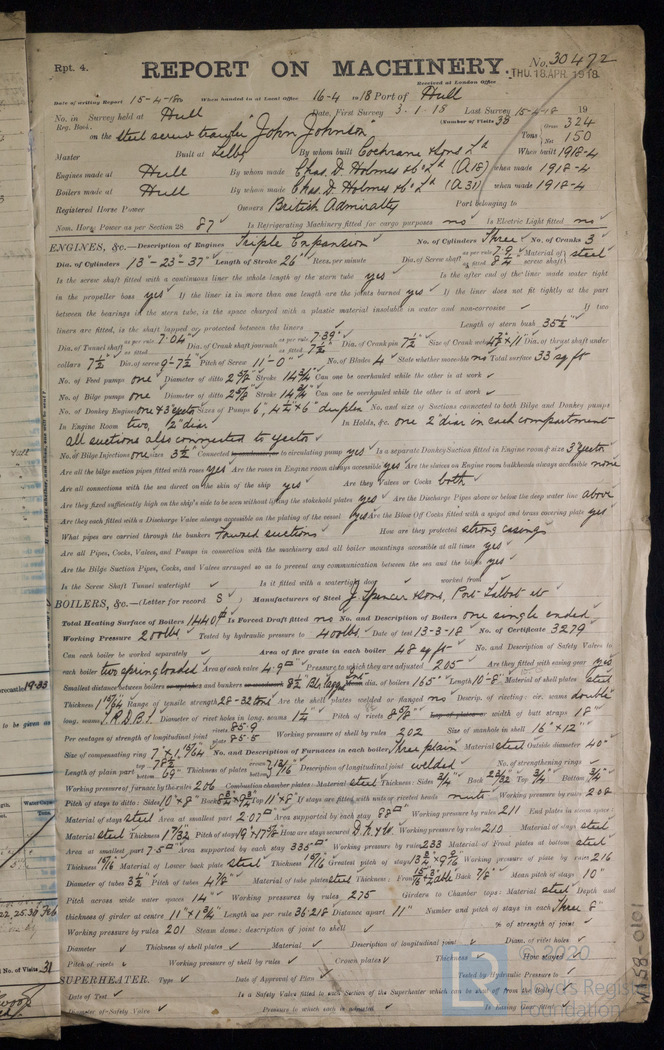 Rpt. 4.
REPORT ON MACHINERY.
No. 30472
Received at London Office THU. 18 APR. 1918
Date of writing Report 15-4-18 When handed in at Local Office 16-4-1918 Port of Hull
No. in Survey held at Hull Date, First Survey 3-1-18 Last Survey 15-4-18 19
Reg. Book. (Number of Visits 38
on the Steel screw trawler "John Johnson" Tons Gross 324 Net 150
Master Built at Selby By whom built Cochrane & Sons Ld When built 1918-4
Engines made at Hull By whom made Chas. D. Holmes & Co Ld (A 18) when made 1918-4
Boilers made at Hull By whom made Chas. D. Holmes & Co Ld (A 31) when made 1918-4
Registered Horse Power Owners British Admiralty Port belonging to
Nom. Horse Power as per Section 28 87 Is Refrigerating Machinery fitted for cargo purposes no Is Electric Light fitted no
ENGINES, &c.—Description of Engines Triple Expansion No. of Cylinders Three No. of Cranks 3
Dia. of Cylinders 13"-23"-37" Length of Stroke 26" Revs. per minute Dia. of Screw shaft as per rule 7.9 as fitted 8¼ Material of screw shaft steel
Is the screw shaft fitted with a continuous liner the whole length of the stern tube yes Is the after end of the liner made water tight
in the propeller boss yes If the liner is in more than one length are the joints burned yes If the liner does not fit tightly at the part
between the bearings in the stern tube, is the space charged with a plastic material insoluble in water and non-corrosive If two
liners are fitted, is the shaft lapped or protected between the liners Length of stern bush 35½"
Dia. of Tunnel shaft as per rule 7.04" as fitted Dia. of Crank shaft journals as per rule 7.39" as fitted 7½" Dia. of Crank pin 7½" Size of Crank webs Dia. of thrust shaft under
collars 7½" Dia. of screw 9'-7½" Pitch of Screw 11'-0" No. of Blades 4 State whether moveable no Total surface 33 sq ft
No. of Feed pumps one Diameter of ditto 2⅝" Stroke 14¾" Can one be overhauled while the other is at work
No. of Bilge pumps one Diameter of ditto 2⅝" Stroke 14¾" Can one be overhauled while the other is at work
No. of Donkey Engines one & 3" ejector Sizes of Pumps 6", 4½" x 6" duplex No. and size of Suctions connected to both Bilge and Donkey pumps
In Engine Room two, 2" dia. In Holds, &c. one 2" dia in each compartment
all suctions also connected to ejector
No. of Bilge Injections one sizes 3½" Connected to circulating pump yes Is a separate Donkey Suction fitted in Engine room & size 3" ejector
Are all the bilge suction pipes fitted with roses yes Are the roses in Engine room always accessible yes Are the sluices on Engine room bulkheads always accessible none
Are all connections with the sea direct on the skin of the ship yes Are they Valves or Cocks both
Are they fixed sufficiently high on the ship's side to be seen without lifting the stokehold plates yes Are the Discharge Pipes above or below the deep water line above
Are they each fitted with a Discharge Valve always accessible on the plating of the vessel yes Are the Blow Off Cocks fitted with a spigot and brass covering plate yes
What pipes are carried through the bunkers Forward suctions How are they protected strong casings
Are all Pipes, Cocks, Valves, and Pumps in connection with the machinery and all boiler mountings accessible at all times yes
Are the Bilge Suction Pipes, Cocks, and Valves arranged so as to prevent any communication between the sea and the bilges yes
Is the Screw Shaft Tunnel watertight Is it fitted with a watertight door worked from
BOILERS, &c.—(Letter for record S) Manufacturers of Steel J. Spencer & Sons, Port Talbot Co
Total Heating Surface of Boilers 1440 Is Forced Draft fitted no No. and Description of Boilers one single ended
Working Pressure 200 lbs Tested by hydraulic pressure to 400 lbs Date of test 13-3-18 No. of Certificate 3279
Can each boiler be worked separately Area of fire grate in each boiler 48 sq ft No. and Description of Safety Valves to
each boiler two spring loaded Area of each valve 4.9 Pressure to which they are adjusted 205 Are they fitted with easing gear yes
Smallest distance between boilers and bunkers 8½" dia. of boilers 165" Length 10'-8" Material of shell plates steel
Thickness Range of tensile strength 28-32 tons Are the shell plates welded or flanged no Descrip. of riveting: cir. seams double
long. seams T.R.D.B.S. Diameter of rivet holes in long. seams Pitch of rivets 8⅝" width of butt straps 18"
Per centages of strength of longitudinal joint rivets 85.9 plate 85.5 Working pressure of shell by rules 202 Size of manhole in shell 16" x 12"
Size of compensating ring No. and Description of Furnaces in each boiler three plain Material steel Outside diameter 40"
Length of plain part top 78½ bottom 69" Thickness of plates crown bottom Description of longitudinal joint welded No. of strengthening rings
Working pressure of furnace by the rules 206 Combustion chamber plates: Material steel Thickness: Sides ¾" Back 23/32 Top ¾" Bottom ¾"
Pitch of stays to ditto: Sides 10" x 8" Back Top 11" x 8" If stays are fitted with nuts or riveted heads nuts Working pressure by rules 208
Material of stays steel Area at smallest part 2.07 Area supported by each stay 88 Working pressure by rules 211 End plates in steam space:
Material steel Thickness 1 7/32 Pitch of stays How are stays secured D.N. & W. Working pressure by rules 210 Material of stays steel
Area at smallest part 7.5 Area supported by each stay 335 Working pressure by rules 233 Material of Front plates at bottom steel
Thickness 15/16 Material of Lower back plate steel Thickness 15/16 Greatest pitch of stays Working pressure of plate by rules 216
Diameter of tubes 3½" Pitch of tubes 4⅞" Material of tube plates steel Thickness: Front Back ⅞" Mean pitch of stays 10"
Pitch across wide water spaces 14" Working pressures by rules 275 Girders to Chamber tops: Material steel Depth and
thickness of girder at centre 11" x 1¾" Length as per rule 36.218 Distance apart 11" Number and pitch of stays in each Three 8"
Working pressure by rules 201 Steam dome: description of joint to shell % of strength of joint
Diameter Thickness of shell plates Material Description of longitudinal joint Diam. of rivet holes
Pitch of rivets Working pressure of shell by rules Crown plates Thickness How stayed
SUPERHEATER. Type Date of Approval of Plan Tested by Hydraulic Pressure to
Date of Test Is a Safety Valve fitted to each Section of the Superheater which can be shut off from the Boiler
Diameter of Safety Valve Pressure to which each is adjusted Is Easing Gear fitted
© 2020
Lloyd's Register
Foundation
W1158-0101
No. of Visits 31
to be given as